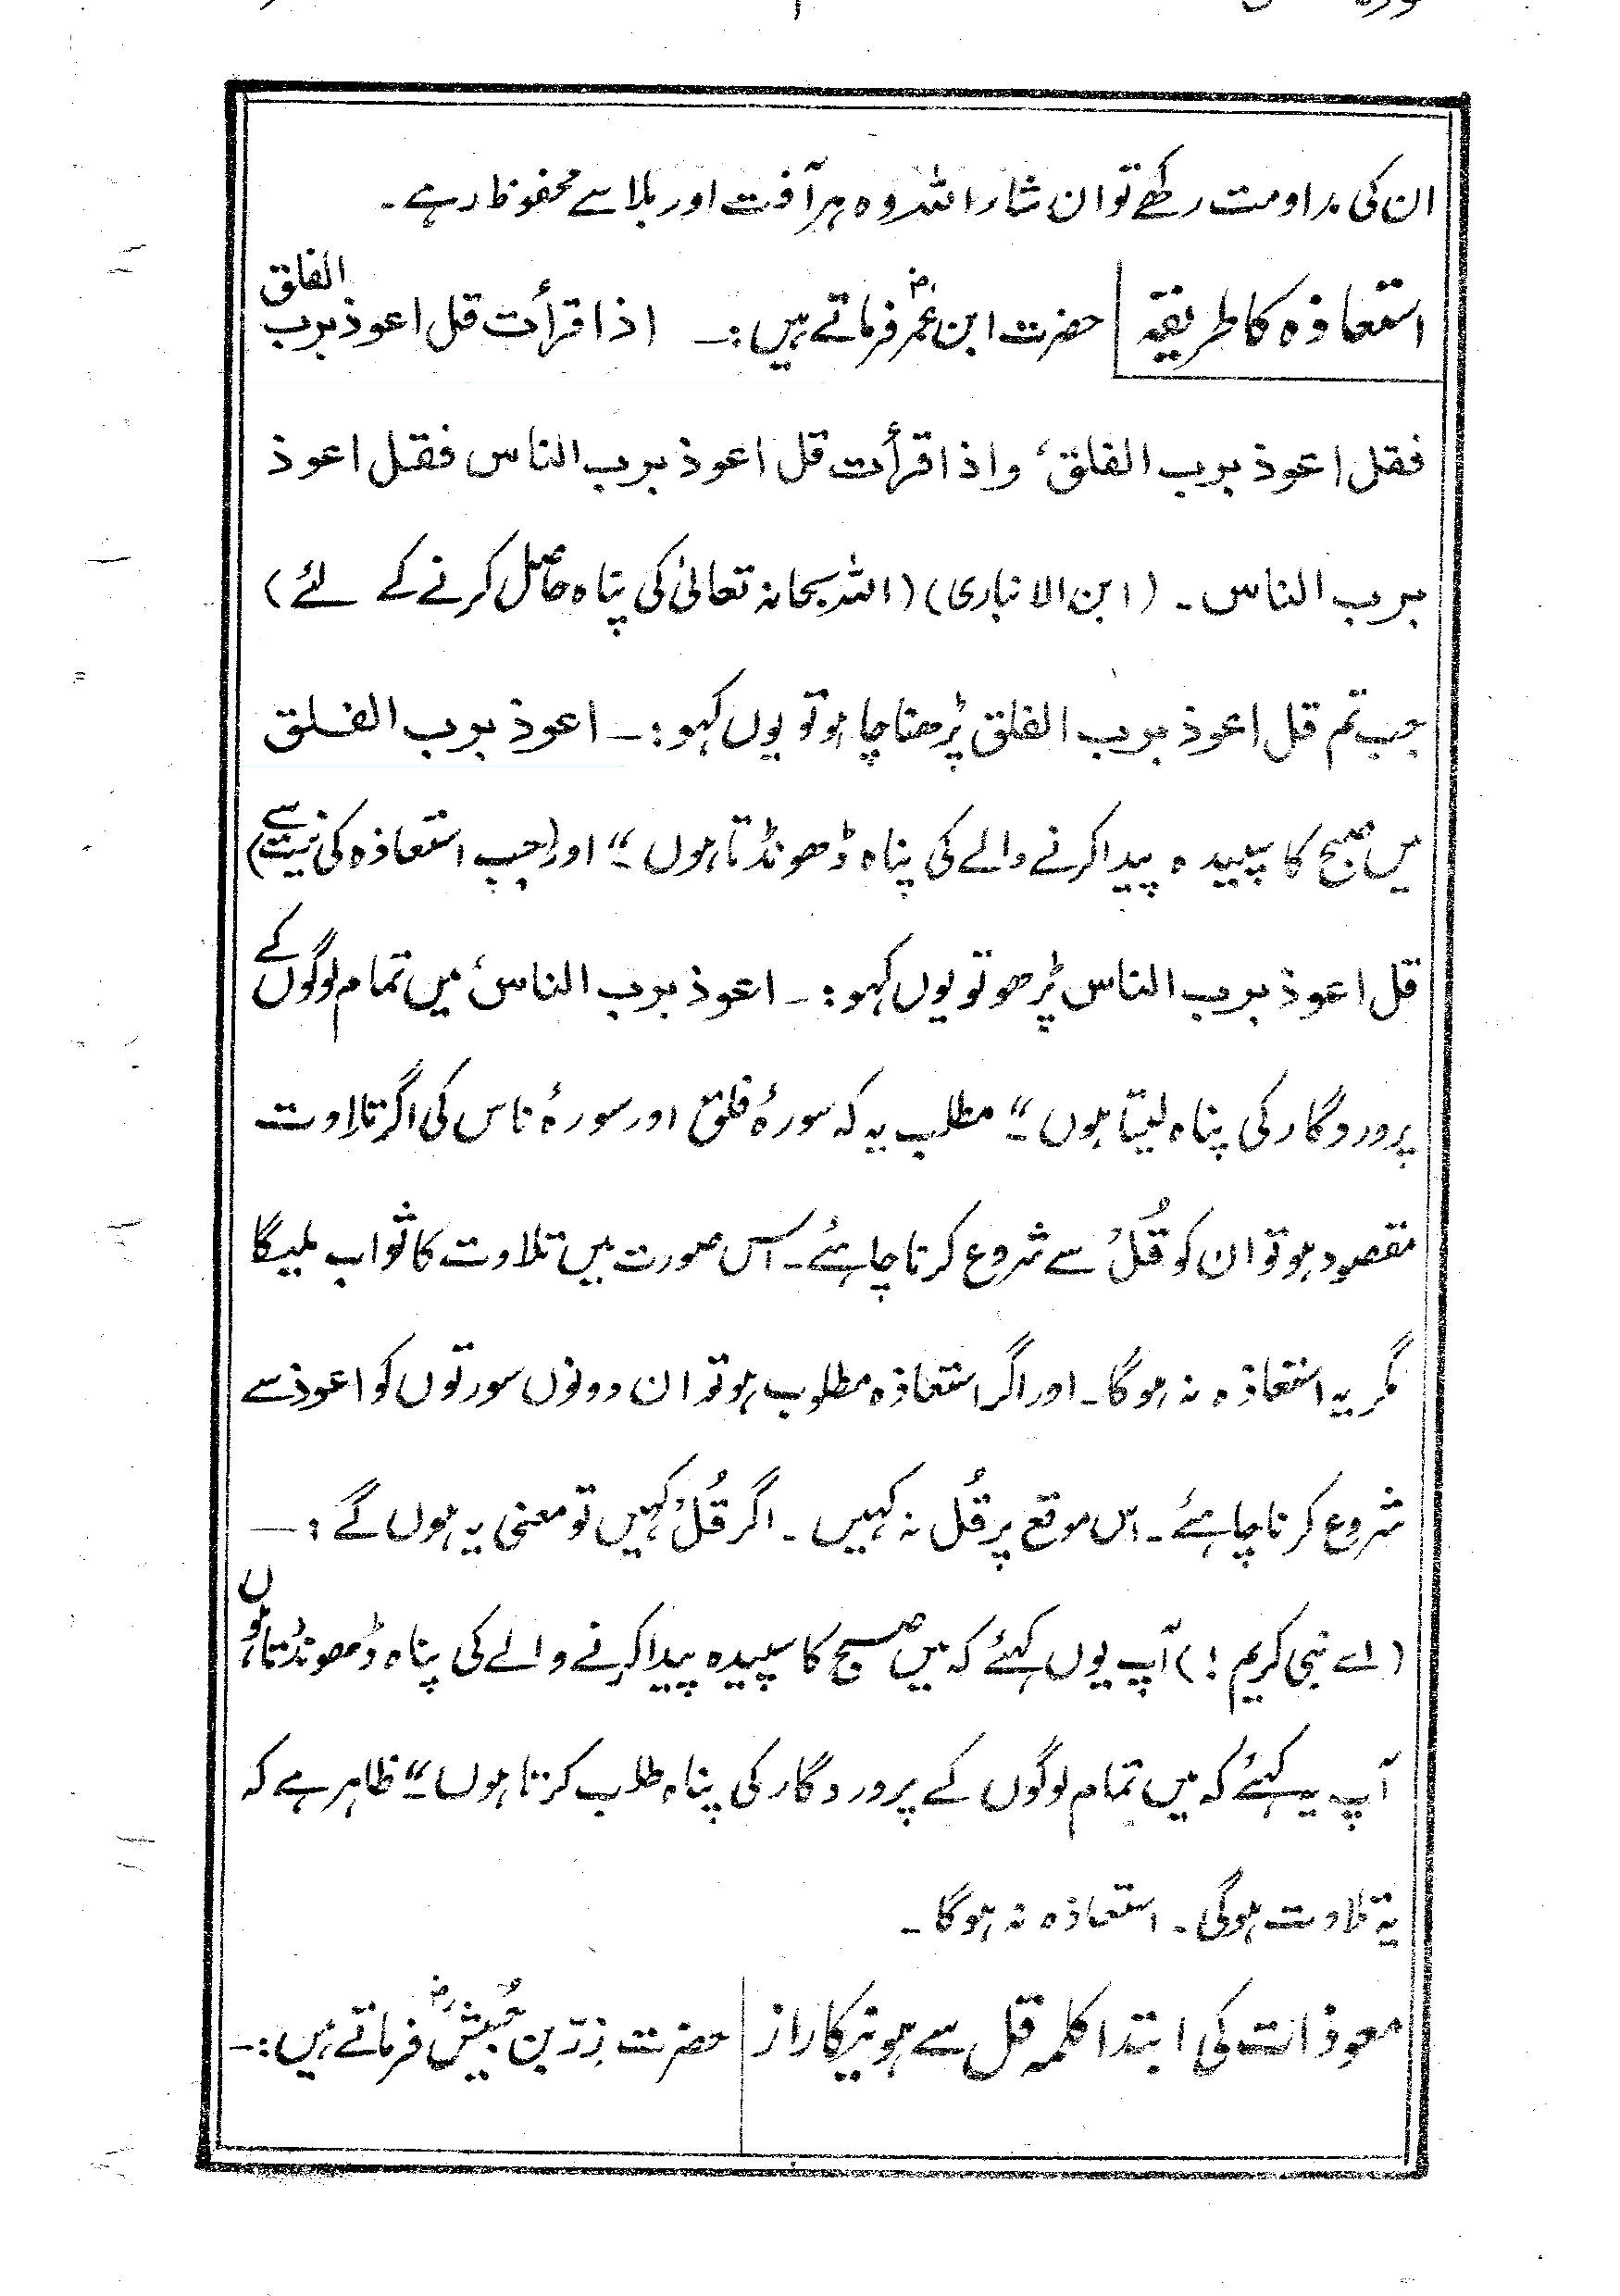 ان کی مداومت رکھے تو ان شاء اللہ وہ ہر آفت اور بلا سے محفوظ رہے۔
استعاذہ کا طریقہ حضرت ابن عمرؓ فرماتے ہیں:۔ اذا قرأت قل اعوذ برب الفلق
فقل اعوذ برب الفلق، واذا قرأت قل اعوذ برب الناس فقل اعوذ
برب الناس۔ (ابن الانباری) (اللہ سبحانہ تعالیٰ کی پناہ حاصل کرنے کے لئے)
جب تم قل اعوذ برب الفلق پڑھنا چاہو تو یوں کہو:۔ اعوذ برب الفلق
میں صبح کا سپیدہ پیدا کرنے والے کی پناہ ڈھونڈتا ہوں۔“ اور (جب استعاذہ کی نیت سے)
قل اعوذ برب الناس پڑھو تو یوں کہو:۔ اعوذ برب الناس، میں تمام لوگوں کے
پروردگار کی پناہ لیتا ہوں۔“ مطلب یہ کہ سورۂ فلق اور سورۂ ناس کی اگر تلاوت
مقصود ہو تو ان کو قُلْ سے شروع کرنا چاہئے۔ اس صورت میں تلاوت کا ثواب ملیگا
مگر یہ استعاذہ نہ ہوگا۔ اور اگر استعاذہ مطلوب ہو تو ان دونوں سورتوں کو اعوذ سے
شروع کرنا چاہئے۔ اس موقع پر قُل نہ کہیں۔ اگر قُلْ کہیں تو معنی یہ ہوں گے:۔
(اے نبی کریم!) آپ یوں کہئے کہ میں صبح کا سپیدہ پیدا کرنے والے کی پناہ ڈھونڈتا ہوں
آپ یہ کہئے کہ میں تمام لوگوں کے پروردگار کی پناہ طلب کرتا ہوں۔“ ظاہر ہے کہ
یہ تلاوت ہوگی۔ استعاذہ نہ ہوگا۔
معوذات کی ابتدا کلمہ قل سے ہونیکا راز حضرت زِرّ بن حُبیشؓ فرماتے ہیں:۔